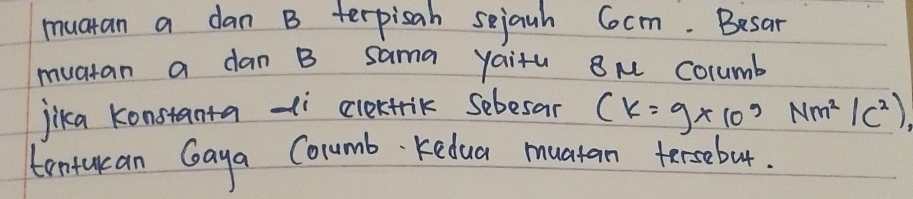 muatan a dan B terpisah sejauh 6cm. Besar
muatan a dan B sama yaitu 8 μ Columb
jika konstanta di elektrik sebesar (K = 9 × 10⁹ Nm² / C²),
tentukan Gaya Columb. kedua muatan tersebut.